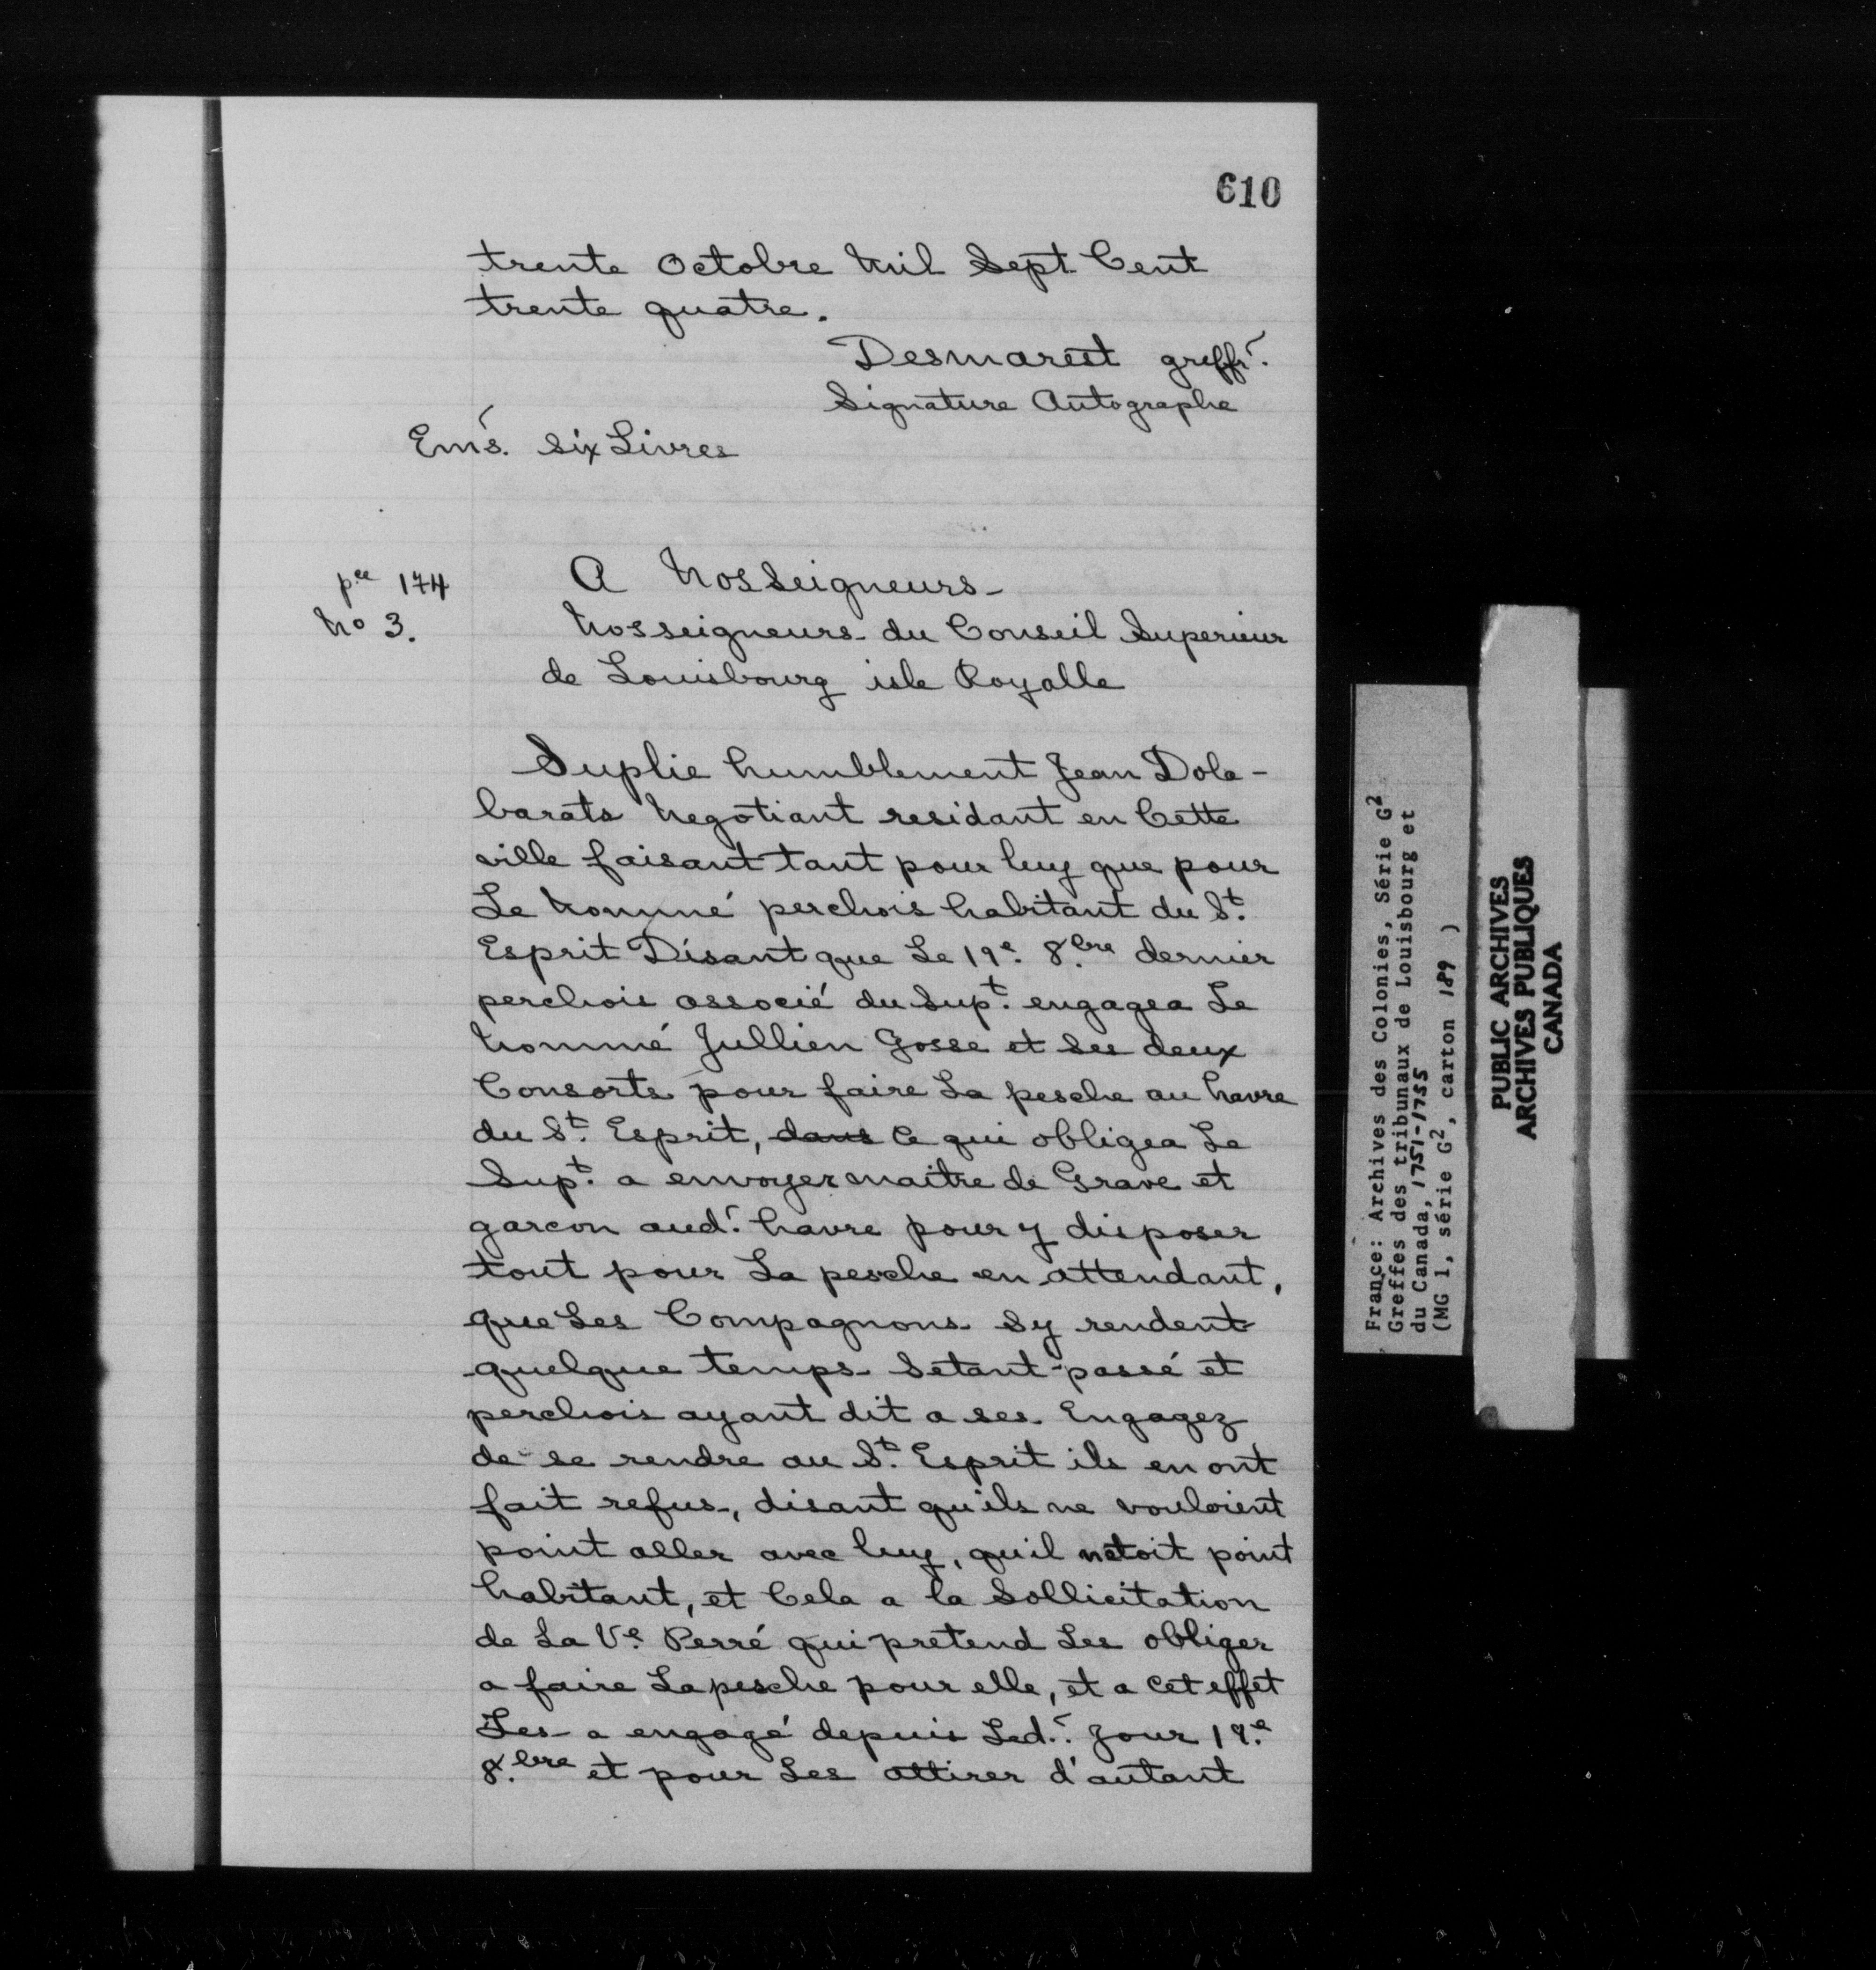 610
trente Octobre Mil Sept Cent
trente quatre.
Desmarest greffr.
Signature Autographe
Ems. six Livres
pce 174
No 3.
A Nosseigneurs
Nosseigneurs du Conseil Superieur
de Louisbourg isle Royalle
Suplie humblement Jean Dola-
barats Negotiant residant en Cette
ville faisant tant pour luy que pour
Le Nommé perchois habitant du St.
Esprit Disant que Le 19e. 8.bre dernier
perchois associé du Supt. engagea Le
Nommé Jullien Gosse et ses deux
Consorts pour faire La pesche au havre
du St. Esprit, dans ce qui obligea Le
Supt. a envoyer maitre de Grave et
garcon aud. havre pour y disposer
tout pour La pesche en attendant,
que Les Compagnons sy rendent
quelque temps setant passé et
perchois ayant dit a ses Engagez
de se rendre au St. Esprit ils en ont
fait refus, disant quils ne vouloient
point aller avec luy, quil netoit point
habitant, et Cela a la Sollicitation
de La Ve. Perré qui pretend Les obliger
a faire La pesche pour elle, et a cet effet
Les a engagé depuis Led. Jour 19.e
8.bre et pour Les attirer d'autant
France: Archives des Colonies, Série G2
Greffes des tribunaux de Louisbourg et
du Canada, 1751-1755
(MG 1, série G2, carton 189 )
PUBLIC ARCHIVES
ARCHIVES PUBLIQUES
CANADA